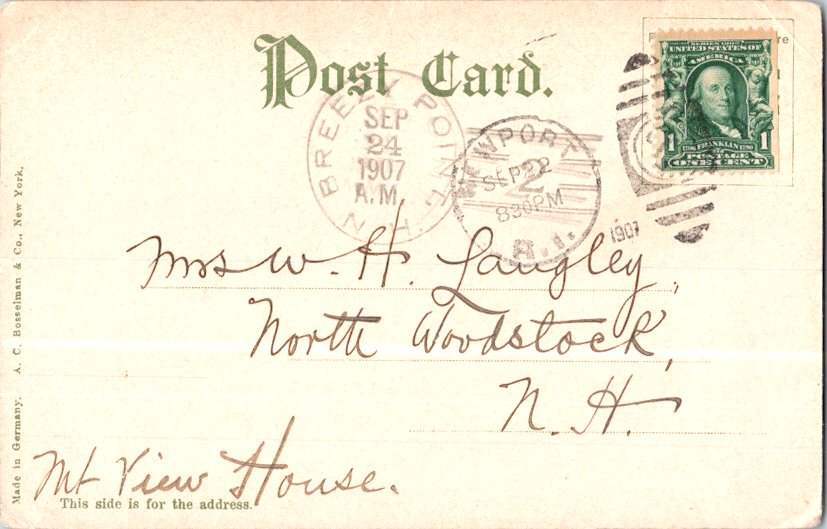 Post Card.
BREEZY POINT
SEP
24
1907
A.M.
N.H.
NEWPORT
SEP 22
2
830PM
R.I.
1907
SERIES 1902
UNITED STATES OF
AMERICA
1 FRANKLIN 1
POSTAGE
ONE CENT
Mrs W. H. Langley,
North Woodstock,
N. H.
Mt View House.
This side is for the address.
Made in Germany. A. C. Bosselman & Co., New York.